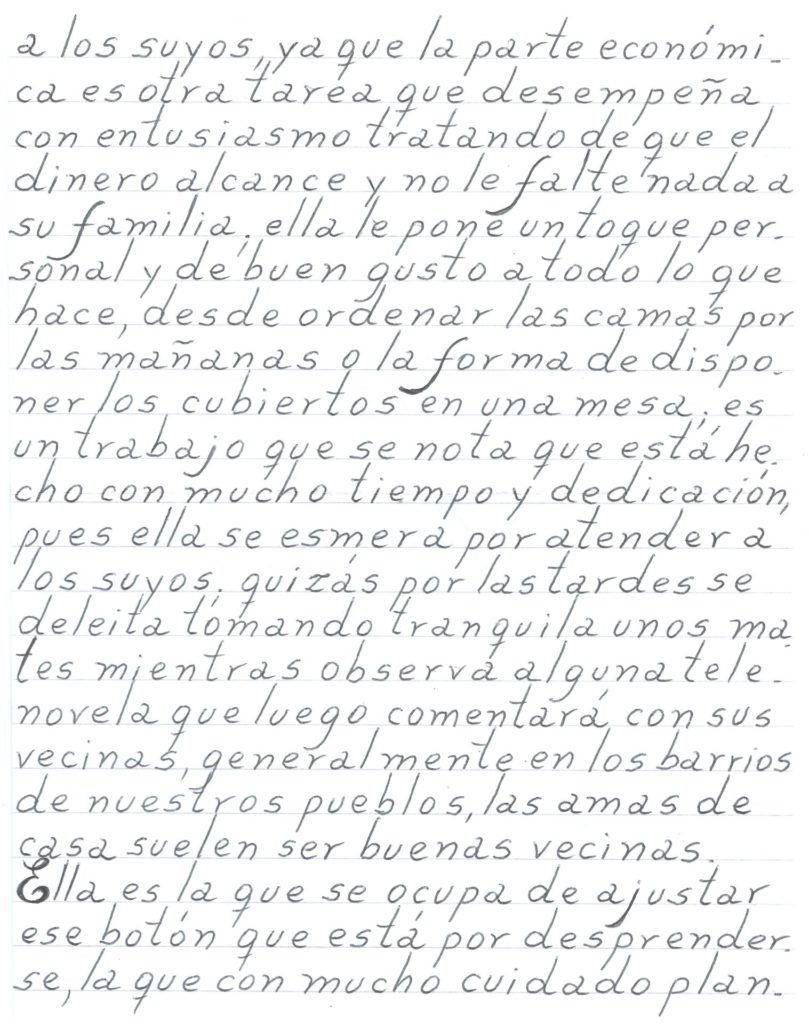 a los suyos, ya que la parte económi-
ca es otra tarea que desempeña
con entusiasmo tratando de que el
dinero alcance y no le falte nada a
su familia; ella le pone un toque per-
sonal y de buen gusto a todo lo que
hace, desde ordenar las camas por
las mañanas o la forma de dispo-
ner los cubiertos en una mesa; es
un trabajo que se nota que está he-
cho con mucho tiempo y dedicación,
pues ella se esmera por atender a
los suyos. quizás por las tardes se
deleita tomando tranquila unos ma-
tes mientras observa alguna tele-
novela que luego comentará con sus
vecinas, generalmente en los barrios
de nuestros pueblos, las amas de
casa suelen ser buenas vecinas.
Ella es la que se ocupa de ajustar
ese botón que está por desprender-
se, la que con mucho cuidado plan-